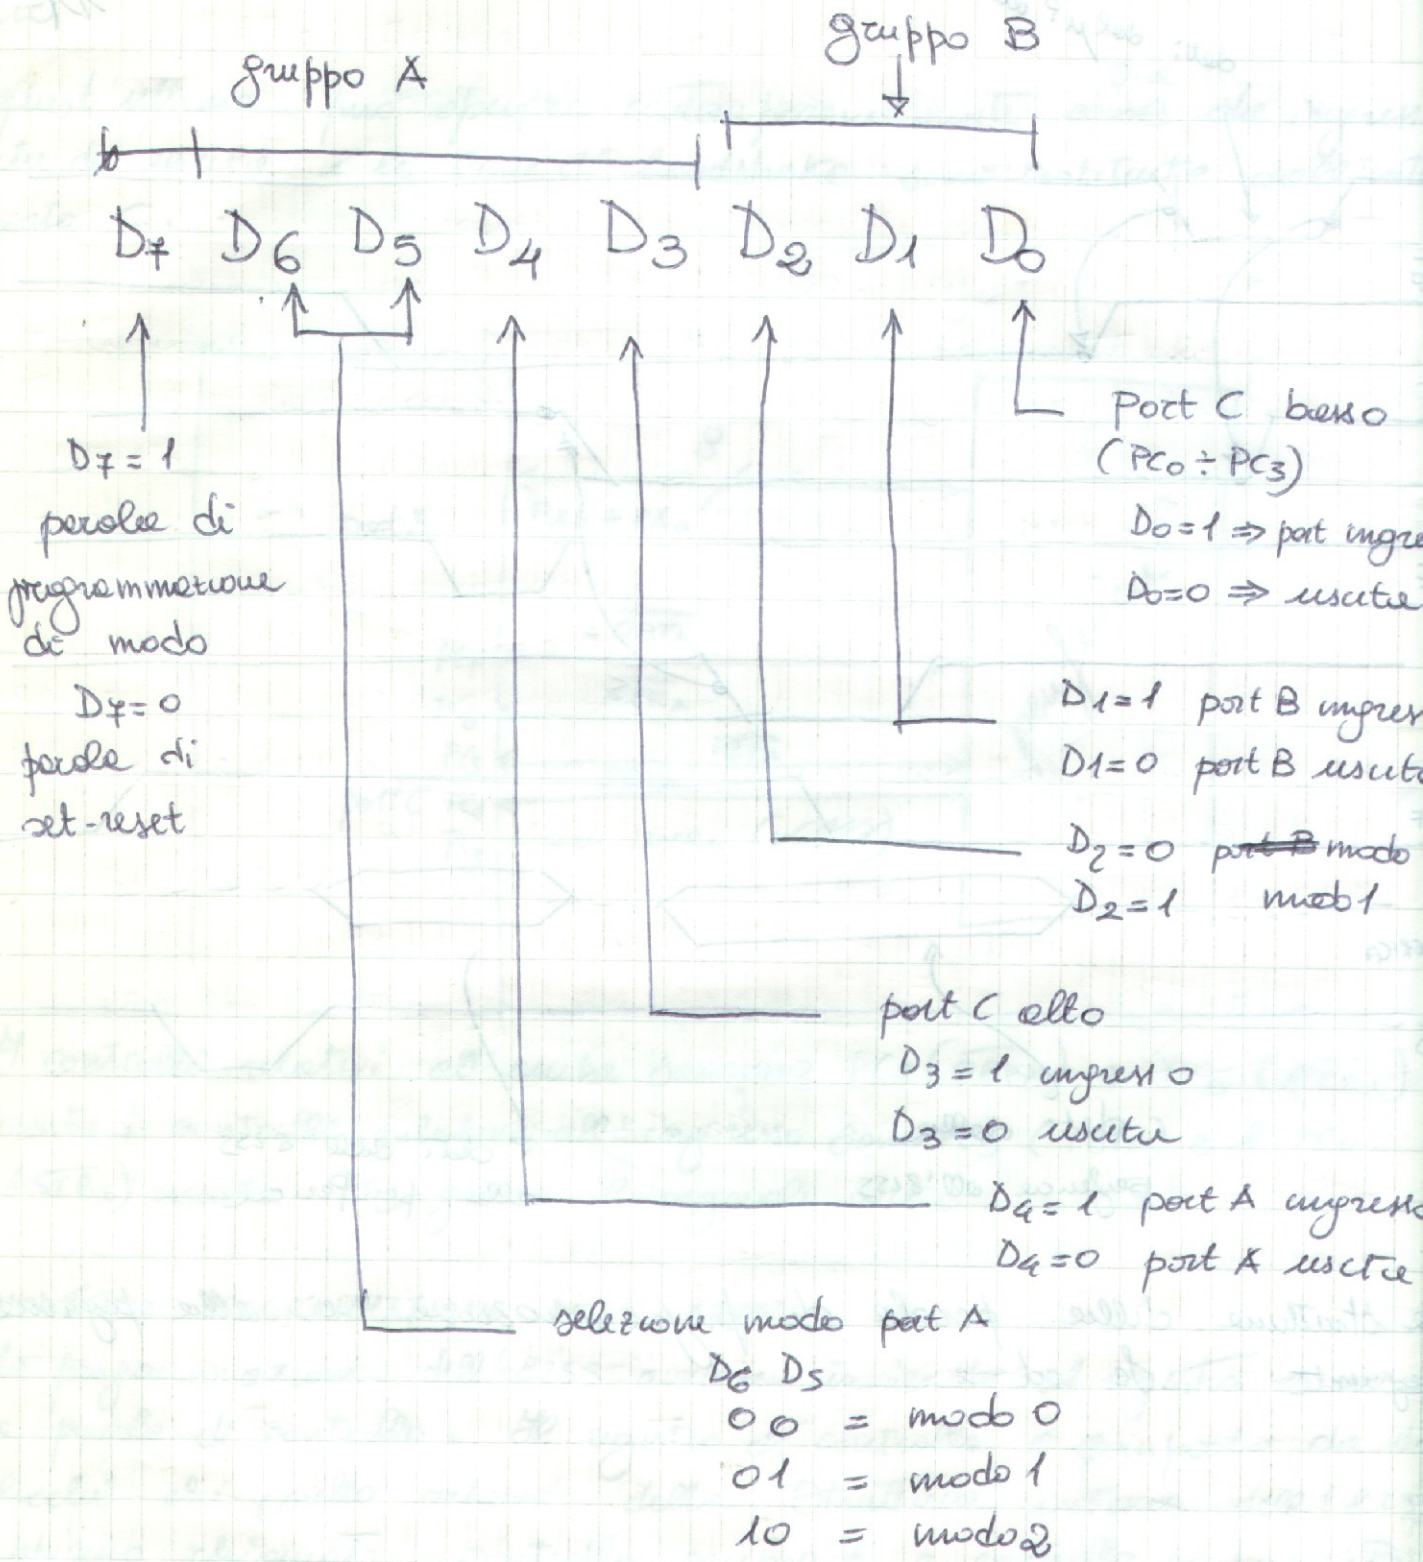 gruppo B
gruppo A
D7 D6 D5 D4 D3 D2 D1 D0
D7 = 1
parola di
programmazione
di modo
D7 = 0
parola di
set-reset
Port C basso
(PC0 ÷ PC3)
D0 = 1 => port ingre
D0=0 => uscita
D1 = 1 port B ingres
D1=0 port B uscita
D2 = 0 port B modo
D2 = 1 modo 1
port C alto
D3 = 1 ingresso
D3 = 0 uscita
D4 = 1 port A ingresso
D4 = 0 port A uscita
selezione modo port A
D6 D5
0 0 = modo 0
0 1 = modo 1
10 = modo 2